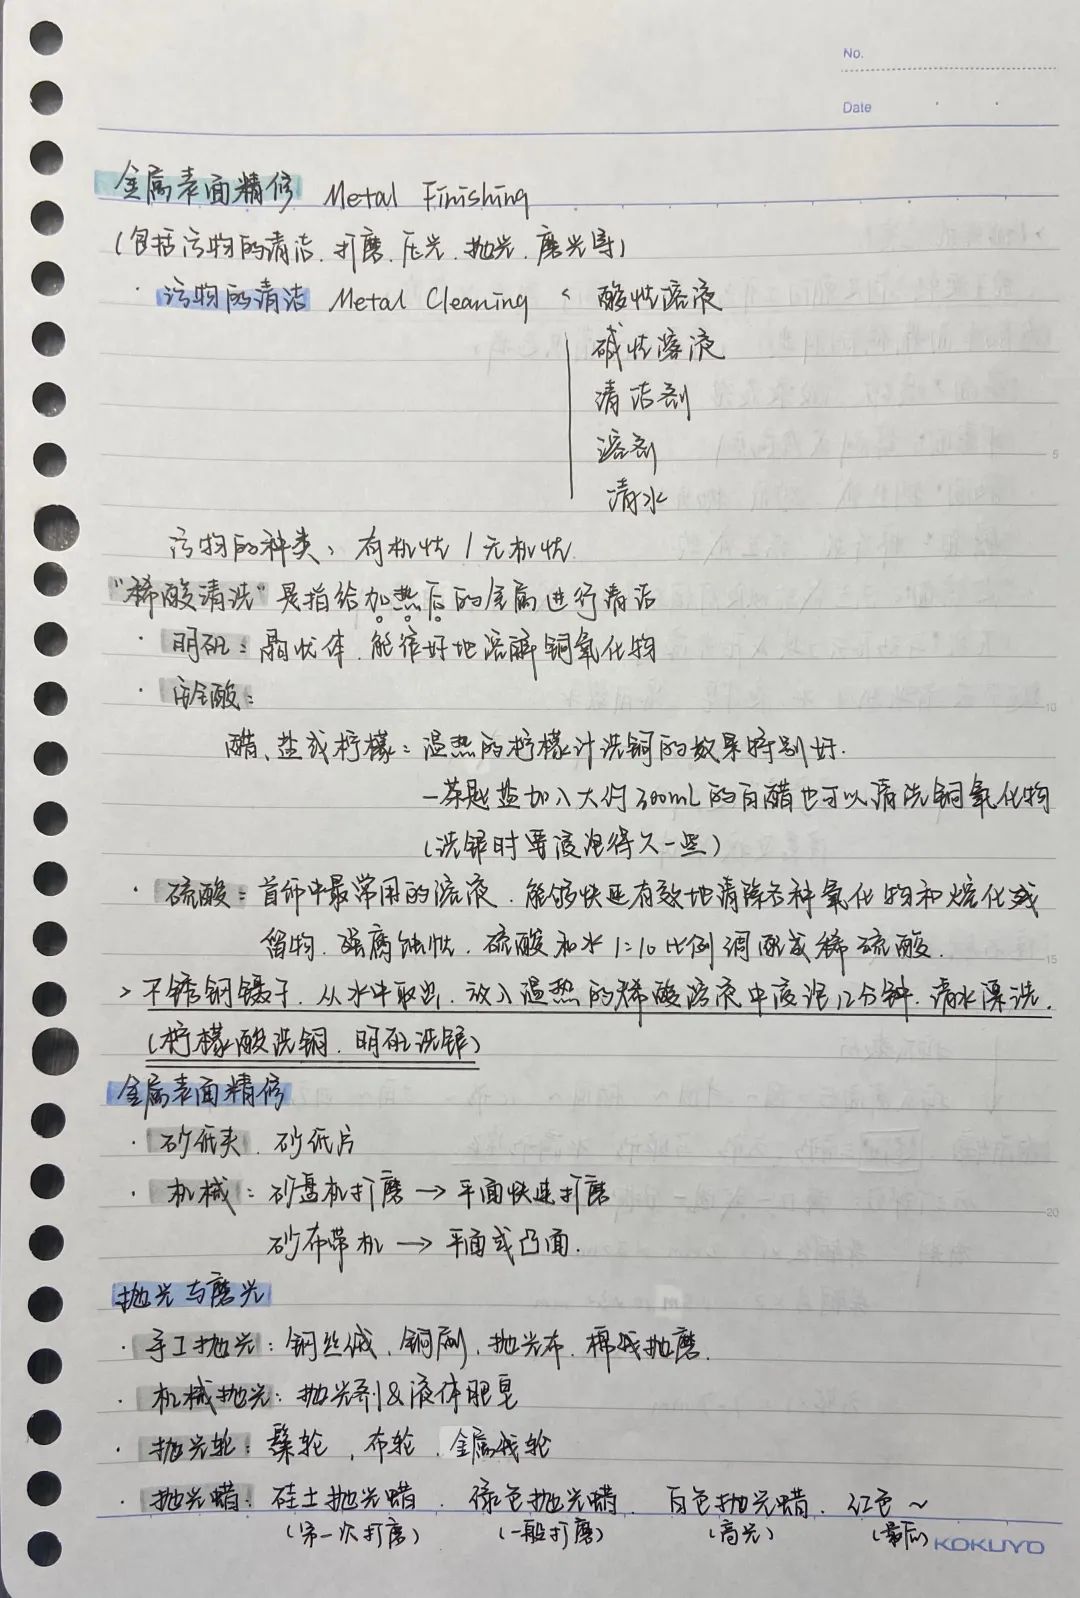 No.
Date
金属表面精修 Metal Finishing
(包括污物的清洁、打磨、压光、抛光、磨光等)
· 污物的清洁 Metal Cleaning < 酸性溶液
碱性溶液
清洁剂
溶剂
清水
污物的种类: 有机性 / 无机性
"稀酸清洗"是指给加热后的金属进行清洁
· 明矾: 晶状体, 能很好地溶解铜氧化物
· 安全酸:
醋、盐或柠檬: 温热的柠檬汁洗铜的效果特别好.
一茶匙盐加入大约300mL的白醋也可以清洗铜氧化物
(洗银时要浸泡得久一些)
· 硫酸: 首饰中最常用的溶液, 能够快速有效地清除各种氧化物和熔化残
留物. 强腐蚀性. 硫酸和水 1:10 比例调配成稀硫酸.
> 不锈钢镊子, 从水中取出, 放入温热的稀酸溶液中浸泡12分钟. 清水漂洗.
(柠檬酸洗铜, 明矾洗银)
金属表面精修
· 砂纸夹、砂纸片
· 机械: 砂盘机打磨 → 平面快速打磨
砂布带机 → 平面或凸面.
抛光与磨光
· 手工抛光: 钢丝绒、铜刷、抛光布、棉线抛磨.
· 机械抛光: 抛光剂&液体肥皂
· 抛光轮: 鬃轮、布轮、金属线轮
· 抛光蜡: 硅土抛光蜡、绿色抛光蜡、白色抛光蜡、红色~
(第一次打磨) (一般打磨) (高光) (最后)
KOKUYO
5
10
15
20